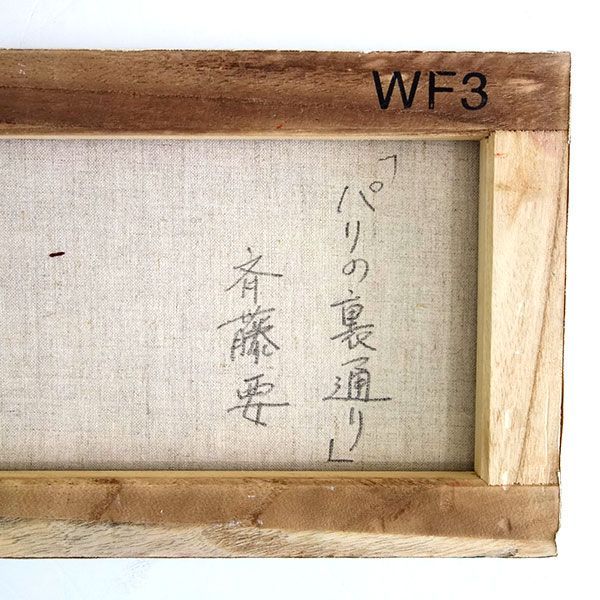 WF3
「パリの裏通り」
斉藤要